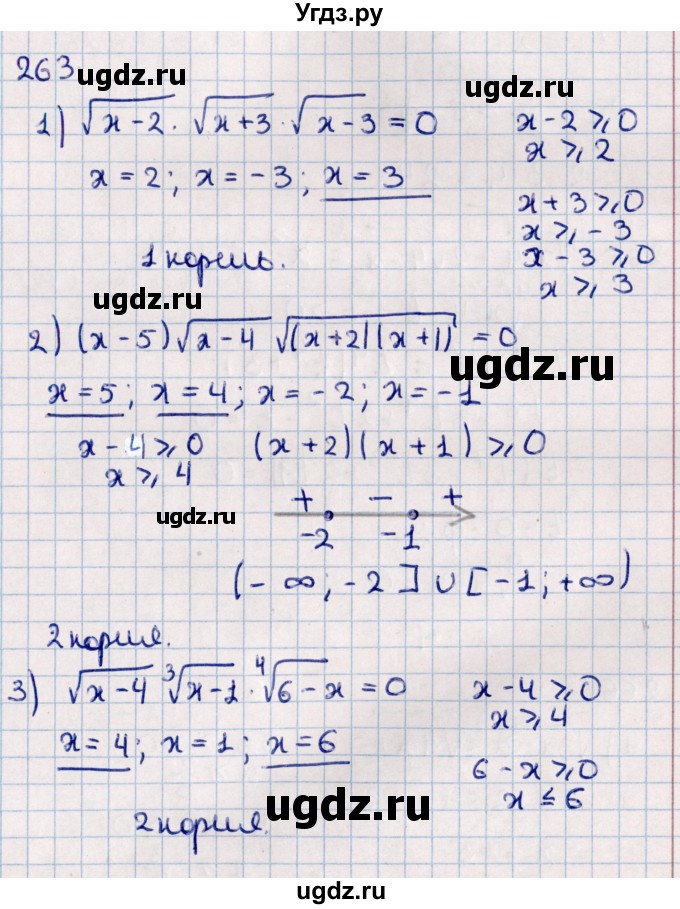 Угдз.ру
263
ugdz.ru
1) √(x-2) · √(x+3) · √(x-3) = 0
x = 2; x = -3; x = 3
x - 2 ⩾ 0
x ⩾ 2
x + 3 ⩾ 0
x ⩾ -3
x - 3 ⩾ 0
x ⩾ 3
1 корень.
ugdz.ru
2) (x-5)√(x-4) √((x+2)(x+1)) = 0
ugdz.ru
x = 5; x = 4; x = -2; x = -1
x - 4 ⩾ 0 (x+2)(x+1) ⩾ 0
x ⩾ 4
ugdz.ru
+ - +
-2 -1
(-∞; -2] ∪ [-1; +∞)
2 корня.
3) √(x-4) ∛(x-1) · ∜(6-x) = 0
x = 4; x = 1; x = 6
x - 4 ⩾ 0
x ⩾ 4
6 - x ⩾ 0
x ≤ 6
ugdz.ru
2 корня.
ugdz.ru